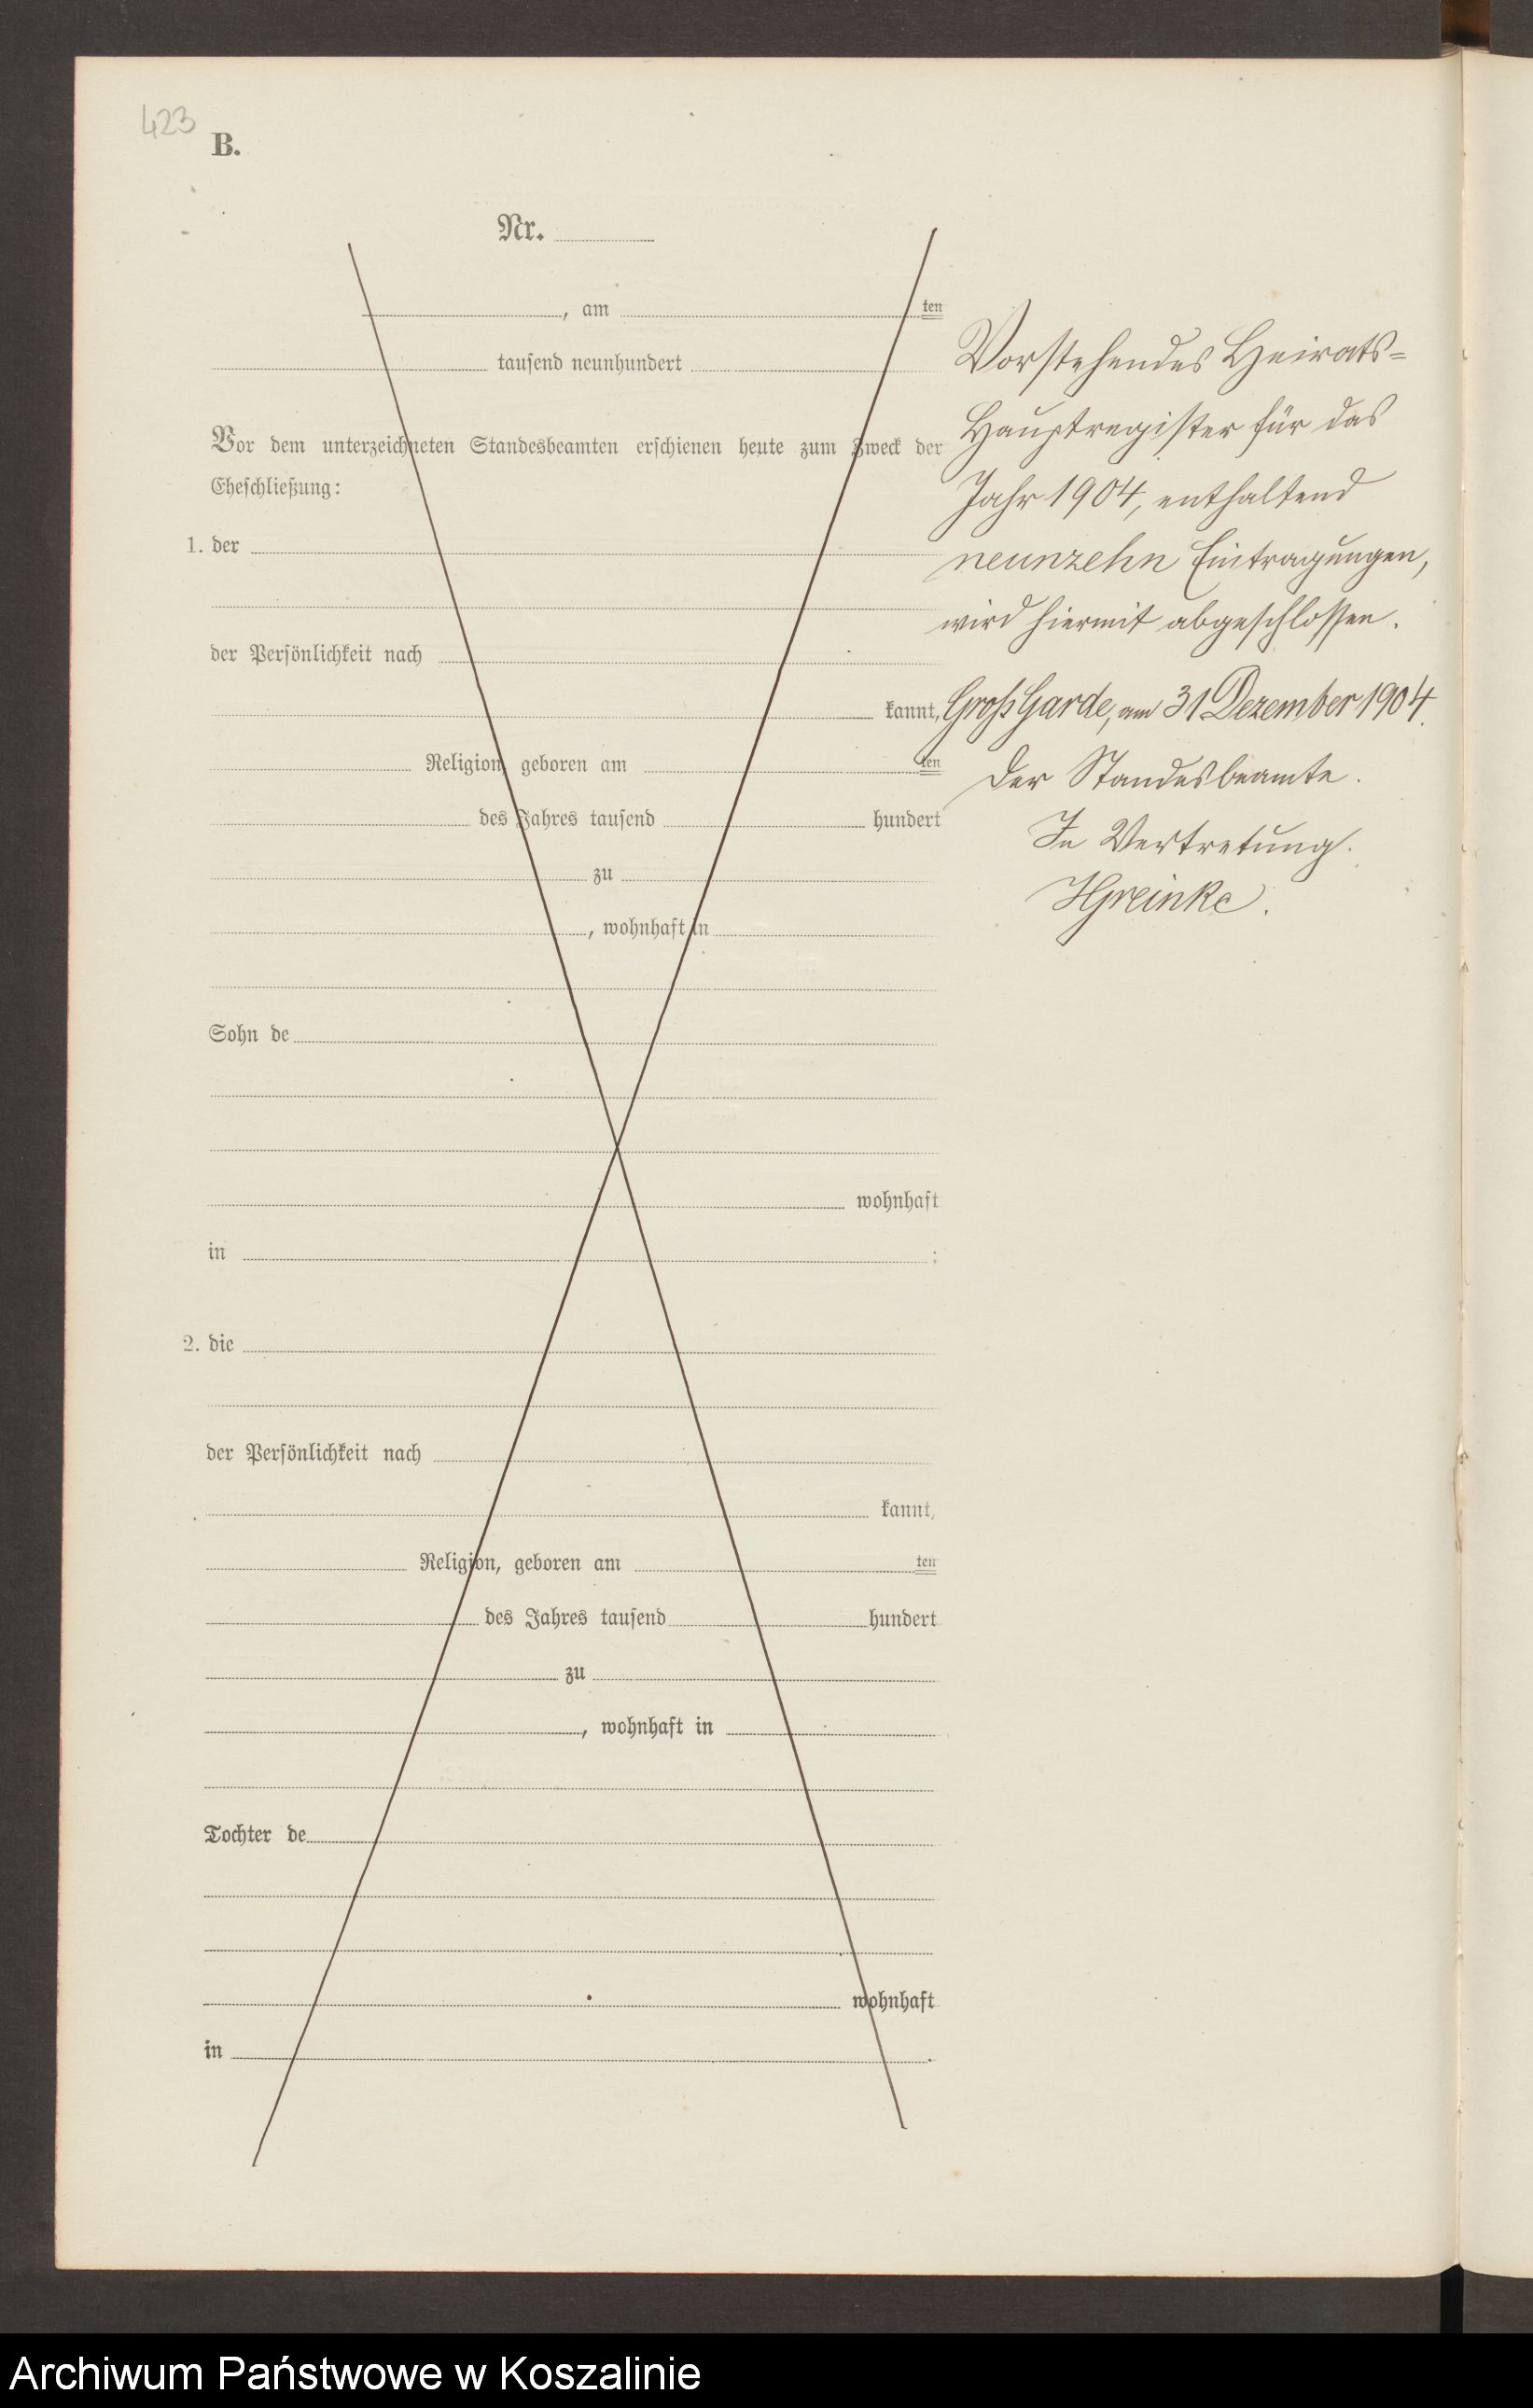 423
B.
Nr.
, am ten
tausend neunhundert
Vor dem unterzeichneten Standesbeamten erschienen heute zum Zweck der
Eheschließung:
1. der
der Persönlichkeit nach
kannt,
Religion, geboren am ten
des Jahres tausend hundert
zu
, wohnhaft in
Sohn de
wohnhaft
in ;
2. die
der Persönlichkeit nach
kannt,
Religion, geboren am ten
des Jahres tausend hundert
zu
, wohnhaft in
Tochter de
wohnhaft
in .
Vorstehendes Heirats-
Hauptregister für das
Jahr 1904, enthaltend
neunzehn Eintragungen,
wird hiermit abgeschlossen.
Groß Garde, am 31 Dezember 1904.
Der Standesbeamte.
In Vertretung.
Archiwum Państwowe w Koszalinie